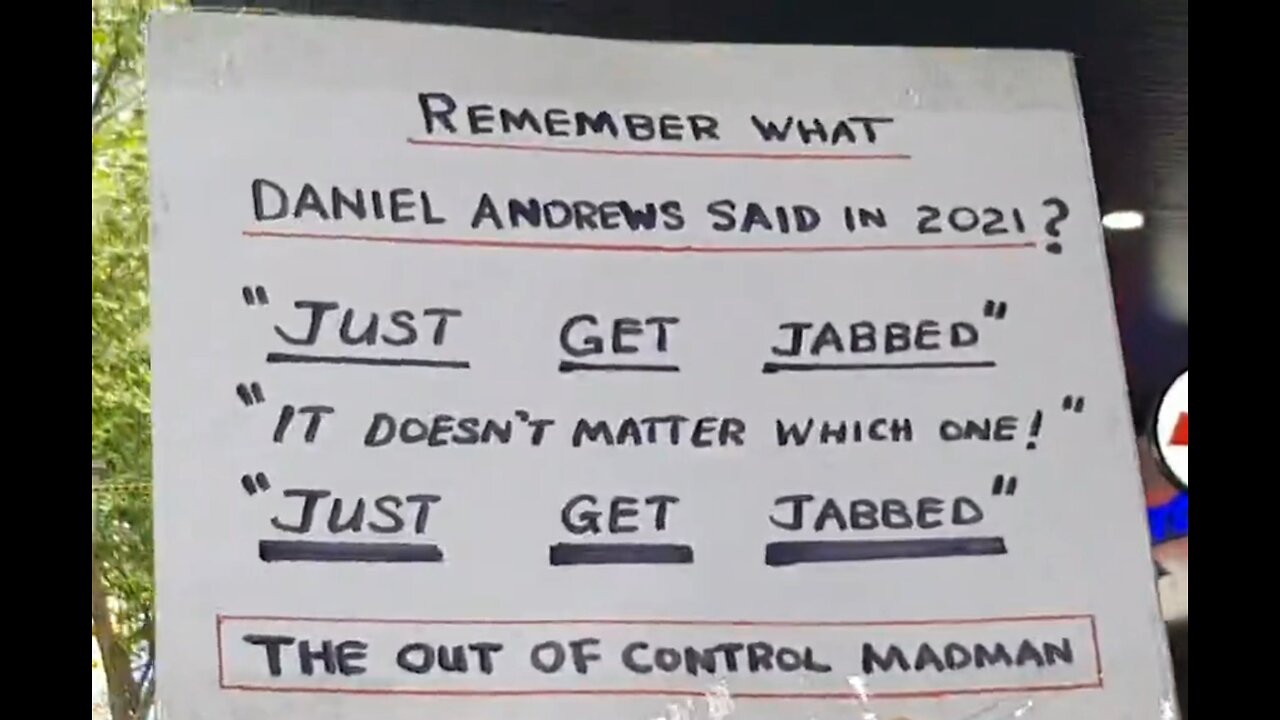 REMEMBER WHAT
DANIEL ANDREWS SAID IN 2021?
"JUST GET JABBED"
"IT DOESN'T MATTER WHICH ONE!"
"JUST GET JABBED"
THE OUT OF CONTROL MADMAN